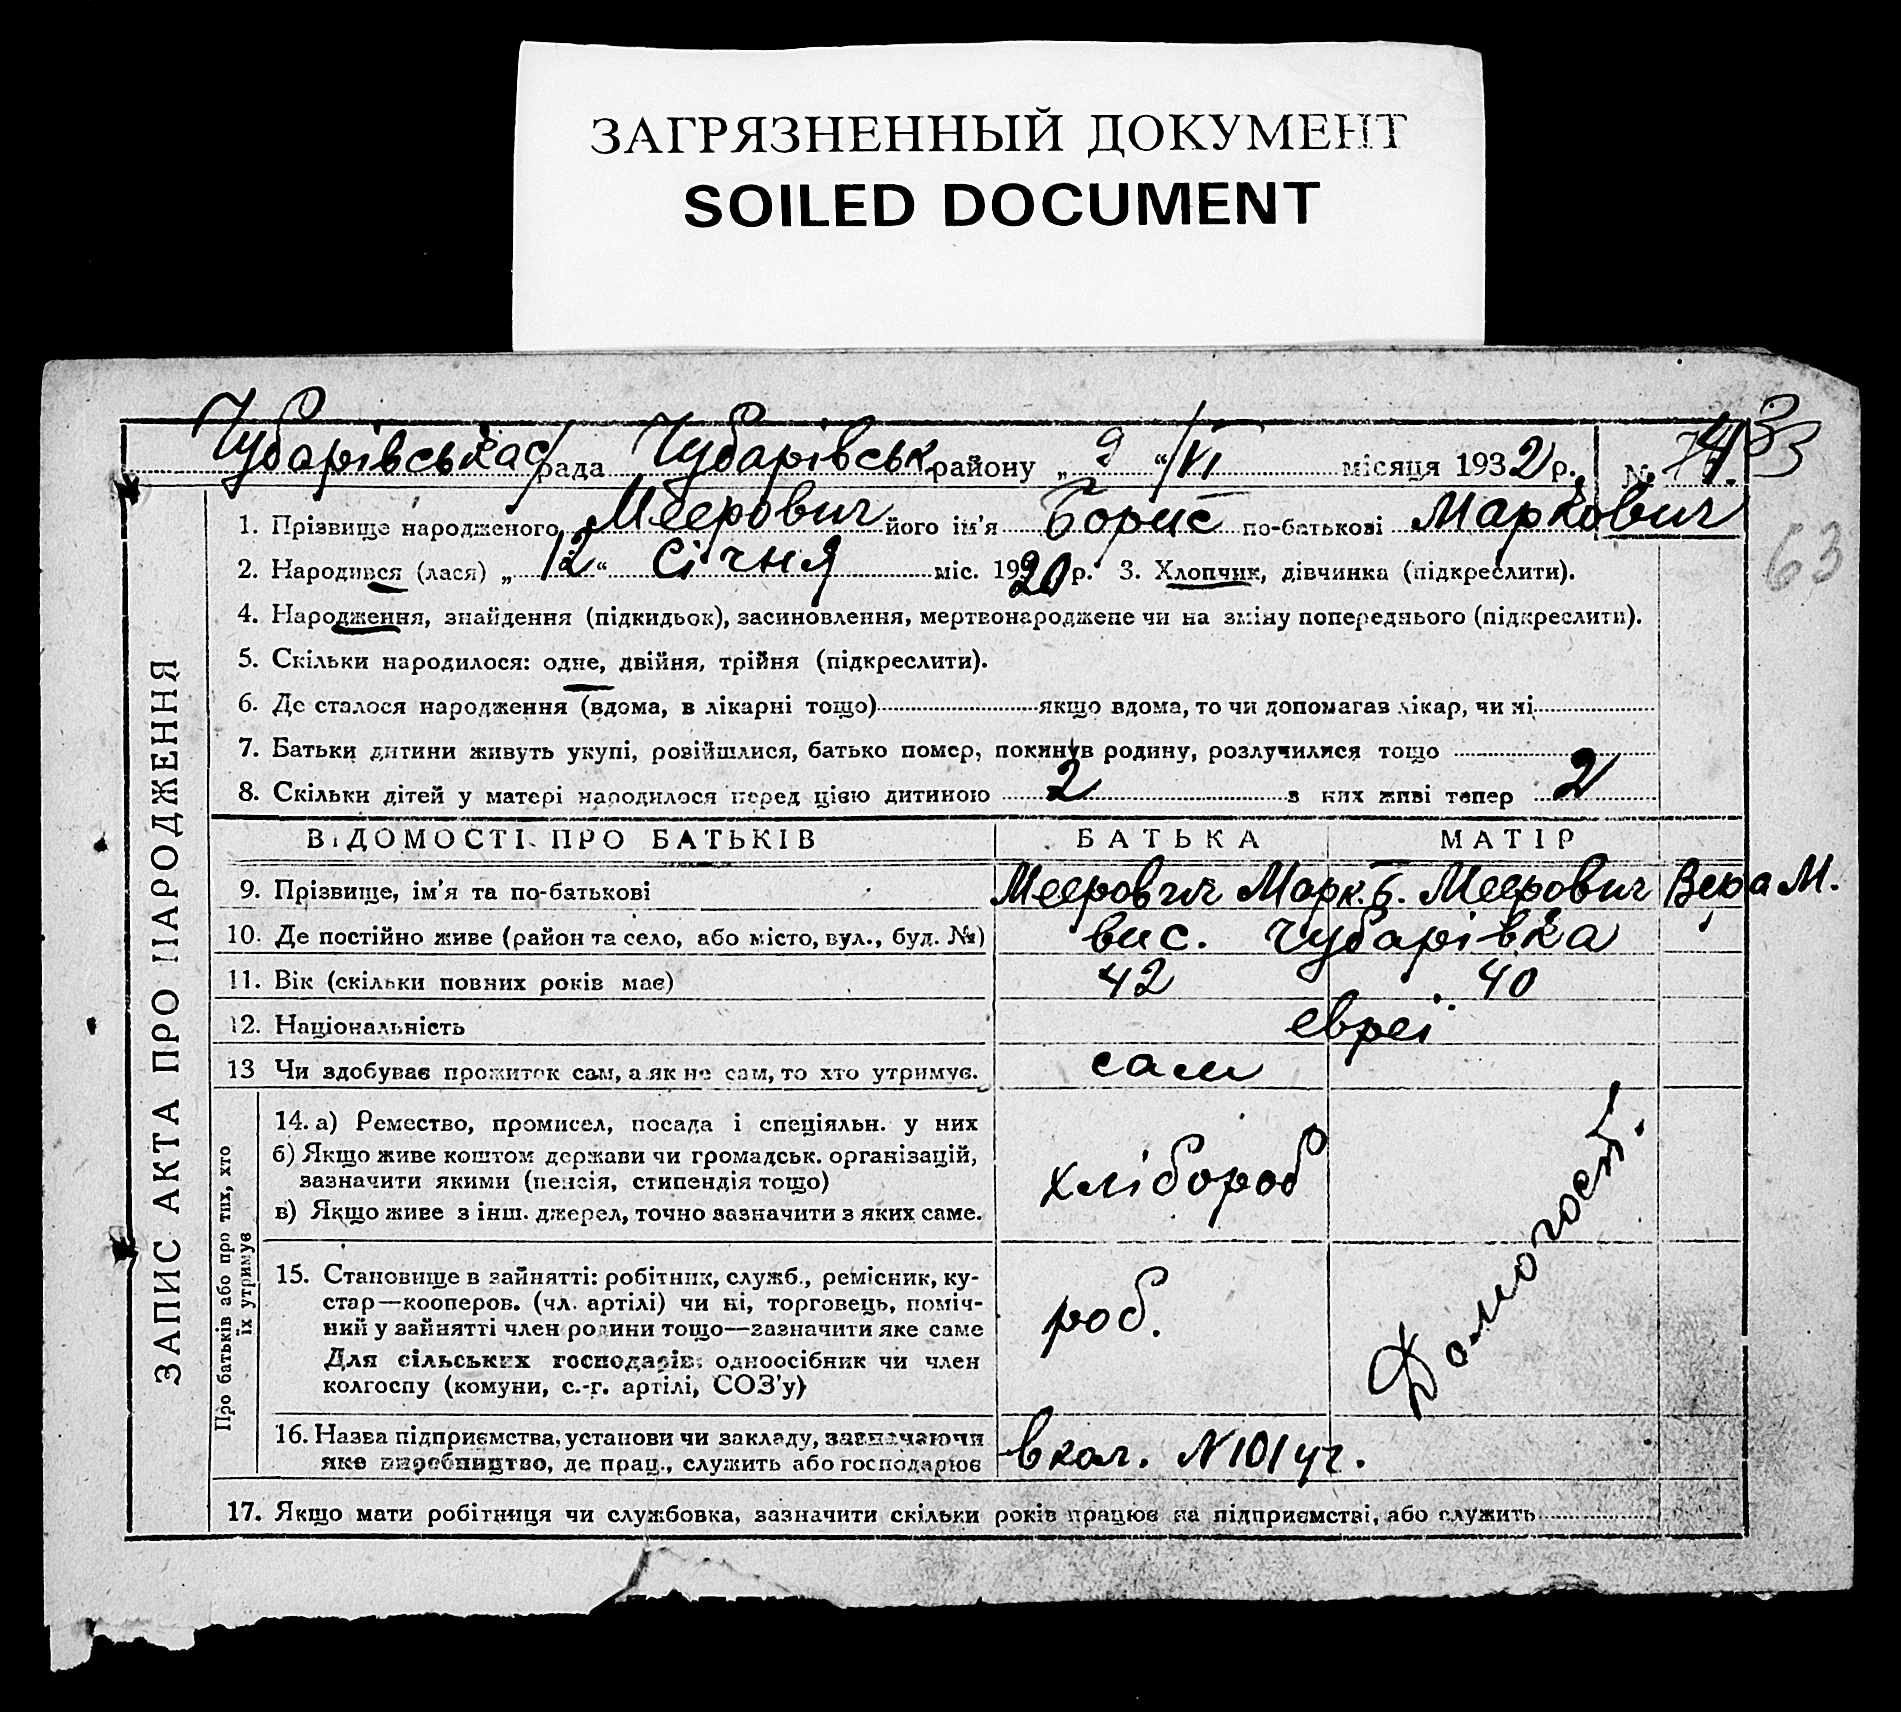 ЗАГРЯЗНЕННЫЙ ДОКУМЕНТ
SOILED DOCUMENT
Чубарівська с/рада Чубарівськ. району „ 9 “ /VI місяця 1932 р. № 74. 33
1. Прізвище народженого Меерович його ім'я Борис по-батькові Маркович
2. Народився (лася) „ 12 “ січня міс. 1920 р. 3. Хлопчик, дівчинка (підкреслити).
63
4. Народження, знайдення (підкидьок), засиновлення, мертвонароджене чи на зміну попереднього (підкреслити).
5. Скільки народилося: одне, двійня, трійня (підкреслити).
6. Де сталося народження (вдома, в лікарні тощо) якщо вдома, то чи допомагав лікар, чи ні
7. Батьки дитини живуть укупі, розійшлися, батько помер, покинув родину, розлучилися тощо
8. Скільки дітей у матері народилося перед цією дитиною 2 з них живі тепер 2
ВІДОМОСТІ ПРО БАТЬКІВ БАТЬКА МАТІР
9. Прізвище, ім'я та по-батькові Меерович Марк. Б. Меерович Вера М.
10. Де постійно живе (район та село, або місто, вул., буд. №) вис. Чубарівка
11. Вік (скільки повних років має) 42 40
12. Національність евреі
13 Чи здобуває прожиток сам, а як не сам, то хто утримує. сам
ЗАПИС АКТА ПРО НАРОДЖЕННЯ
Про батьків або про тих, хто
їх утримує
14. а) Ремество, промисел, посада і спеціяльн. у них
б) Якщо живе коштом держави чи громадськ. організацій,
зазначити якими (пенсія, стипендія тощо)
в) Якщо живе з інш. джерел, точно зазначити з яких саме.
хлібороб
Домогосп.
15. Становище в зайнятті: робітник, служб., ремісник, ку-
стар—кооперов. (чл. артілі) чи ні, торговець, поміч-
ний у зайнятті член родини тощо—зазначити яке саме
Для сільських господарів: одноосібник чи член
колгоспу (комуни, с.-г. артілі, СОЗ'у)
роб.
16. Назва підприємства, установи чи закладу, зазначаючи
яке виробництво, де прац., служить або господарює
в кол. № 101 уч.
17. Якщо мати робітниця чи службовка, зазначити скільки років працює на підприємстві, або служить